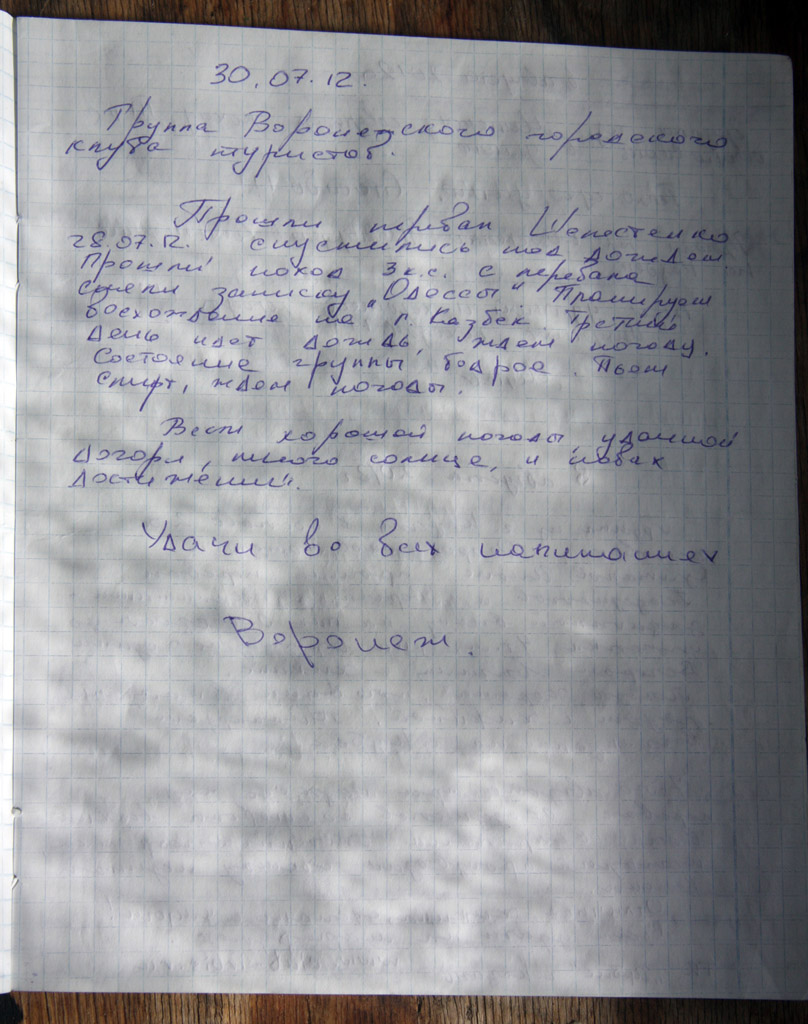 30.07.12.
Группа Воронежского городского
клуба туристов.
Прошли перевал Шелестенко
28.07.12. спустились под дождем.
Прошли поход 3 к.с. с перевала
сняли записку "Одессы". Планируем
восхождение на г. Казбек. Третий
день идет дождь, ждем погоду.
Состояние группы бодрое. Пьем
спирт, ждем погоды.
Всем хорошей погоды, удачной
дороги, много солнца, и новых
достижений.
Удачи во всех
Воронеж.